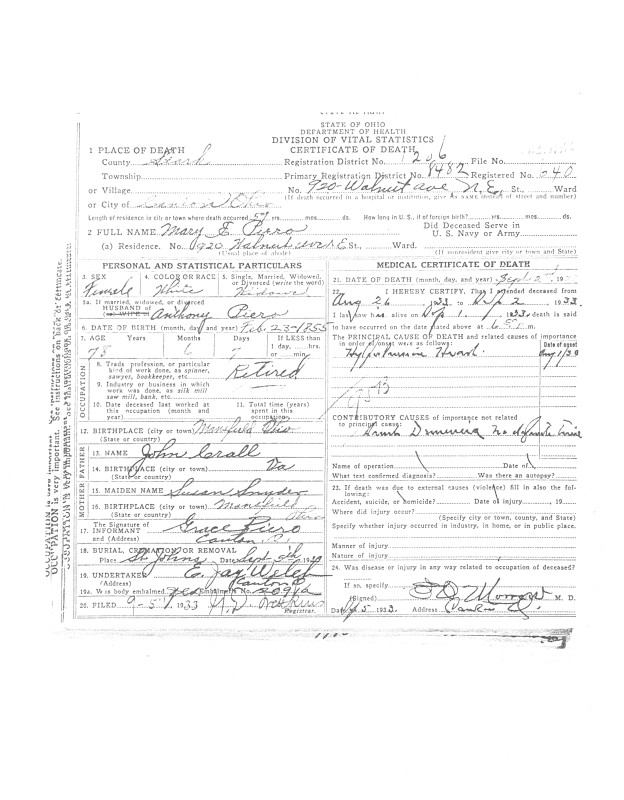 STATE OF OHIO
DEPARTMENT OF HEALTH
DIVISION OF VITAL STATISTICS
CERTIFICATE OF DEATH
1 PLACE OF DEATH
County Stark Registration District No. 1206 File No.
Township Primary Registration District No. 8482 Registered No. 640
or Village No. 920-Walnut Ave, N.E. St., Ward
(If death occurred in a hospital or institution, give its NAME instead of street and number)
or City of Canton Ohio
Length of residence in city or town where death occurred yrs. mos. ds. How long in U. S., if of foreign birth? yrs. mos. ds.
2 FULL NAME Mary E Piero Did Deceased Serve in
U. S. Navy or Army
(a) Residence. No. 920 Walnut Ave N.E. St., Ward.
(Usual place of abode) (If nonresident give city or town and State)
PERSONAL AND STATISTICAL PARTICULARS
3. SEX 4. COLOR OR RACE 5. Single, Married, Widowed, or Divorced (write the word)
Female White Widow
5a. If married, widowed, or divorced
HUSBAND of
(or) WIFE of Anthony Piero
6. DATE OF BIRTH (month, day, and year) Feb 23-1855
7. AGE Years Months Days If LESS than
1 day, hrs.
or min.
78 6
OCCUPATION
8. Trade, profession, or particular
kind of work done, as spinner,
sawyer, bookkeeper, etc. Retired
9. Industry or business in which
work was done, as silk mill
saw mill, bank, etc.
10. Date deceased last worked at
this occupation (month and
year)
11. Total time (years)
spent in this
occupation
12. BIRTHPLACE (city or town) Mansfield Ohio
(State or country)
FATHER
13. NAME John Crall
14. BIRTHPLACE (city or town) Va
(State or country)
MOTHER
15. MAIDEN NAME Susan Snyder
16. BIRTHPLACE (city or town) Mansfield
(State or country) Ohio
17. The Signature of
INFORMANT Grace Piero
and (Address) Canton, O.
18. BURIAL, CREMATION OR REMOVAL
Place St Johns Date Sept 5th 1933
19. UNDERTAKER E. Jay Welch
(Address) Canton O
19a. Was body embalmed yes Embalmer's No. 2091a
20. FILED 9-5 1933
Registrar.
MEDICAL CERTIFICATE OF DEATH
21. DATE OF DEATH (month, day, and year) Sept 2nd 19
22. I HEREBY CERTIFY, That I attended deceased from
Aug 26 1933 to Sep 2 1933.
I last saw her alive on Sep 1 1933, death is said
to have occurred on the date stated above at m.
The PRINCIPAL CAUSE OF DEATH and related causes of importance
in order of onset were as follows: Date of onset
CONTRIBUTORY CAUSES of importance not related
to principal cause:
Name of operation Date of
What test confirmed diagnosis? Was there an autopsy?
23. If death was due to external causes (violence) fill in also the fol-
lowing:
Accident, suicide, or homicide? Date of injury 19
Where did injury occur?
(Specify city or town, county, and State)
Specify whether injury occurred in industry, in home, or in public place.
Manner of injury
Nature of injury
24. Was disease or injury in any way related to occupation of deceased?
If so, specify
(Signed) M. D.
Date 5 1933. Address Canton O.
OCCUPATION is very important. See instructions on back of certificate.